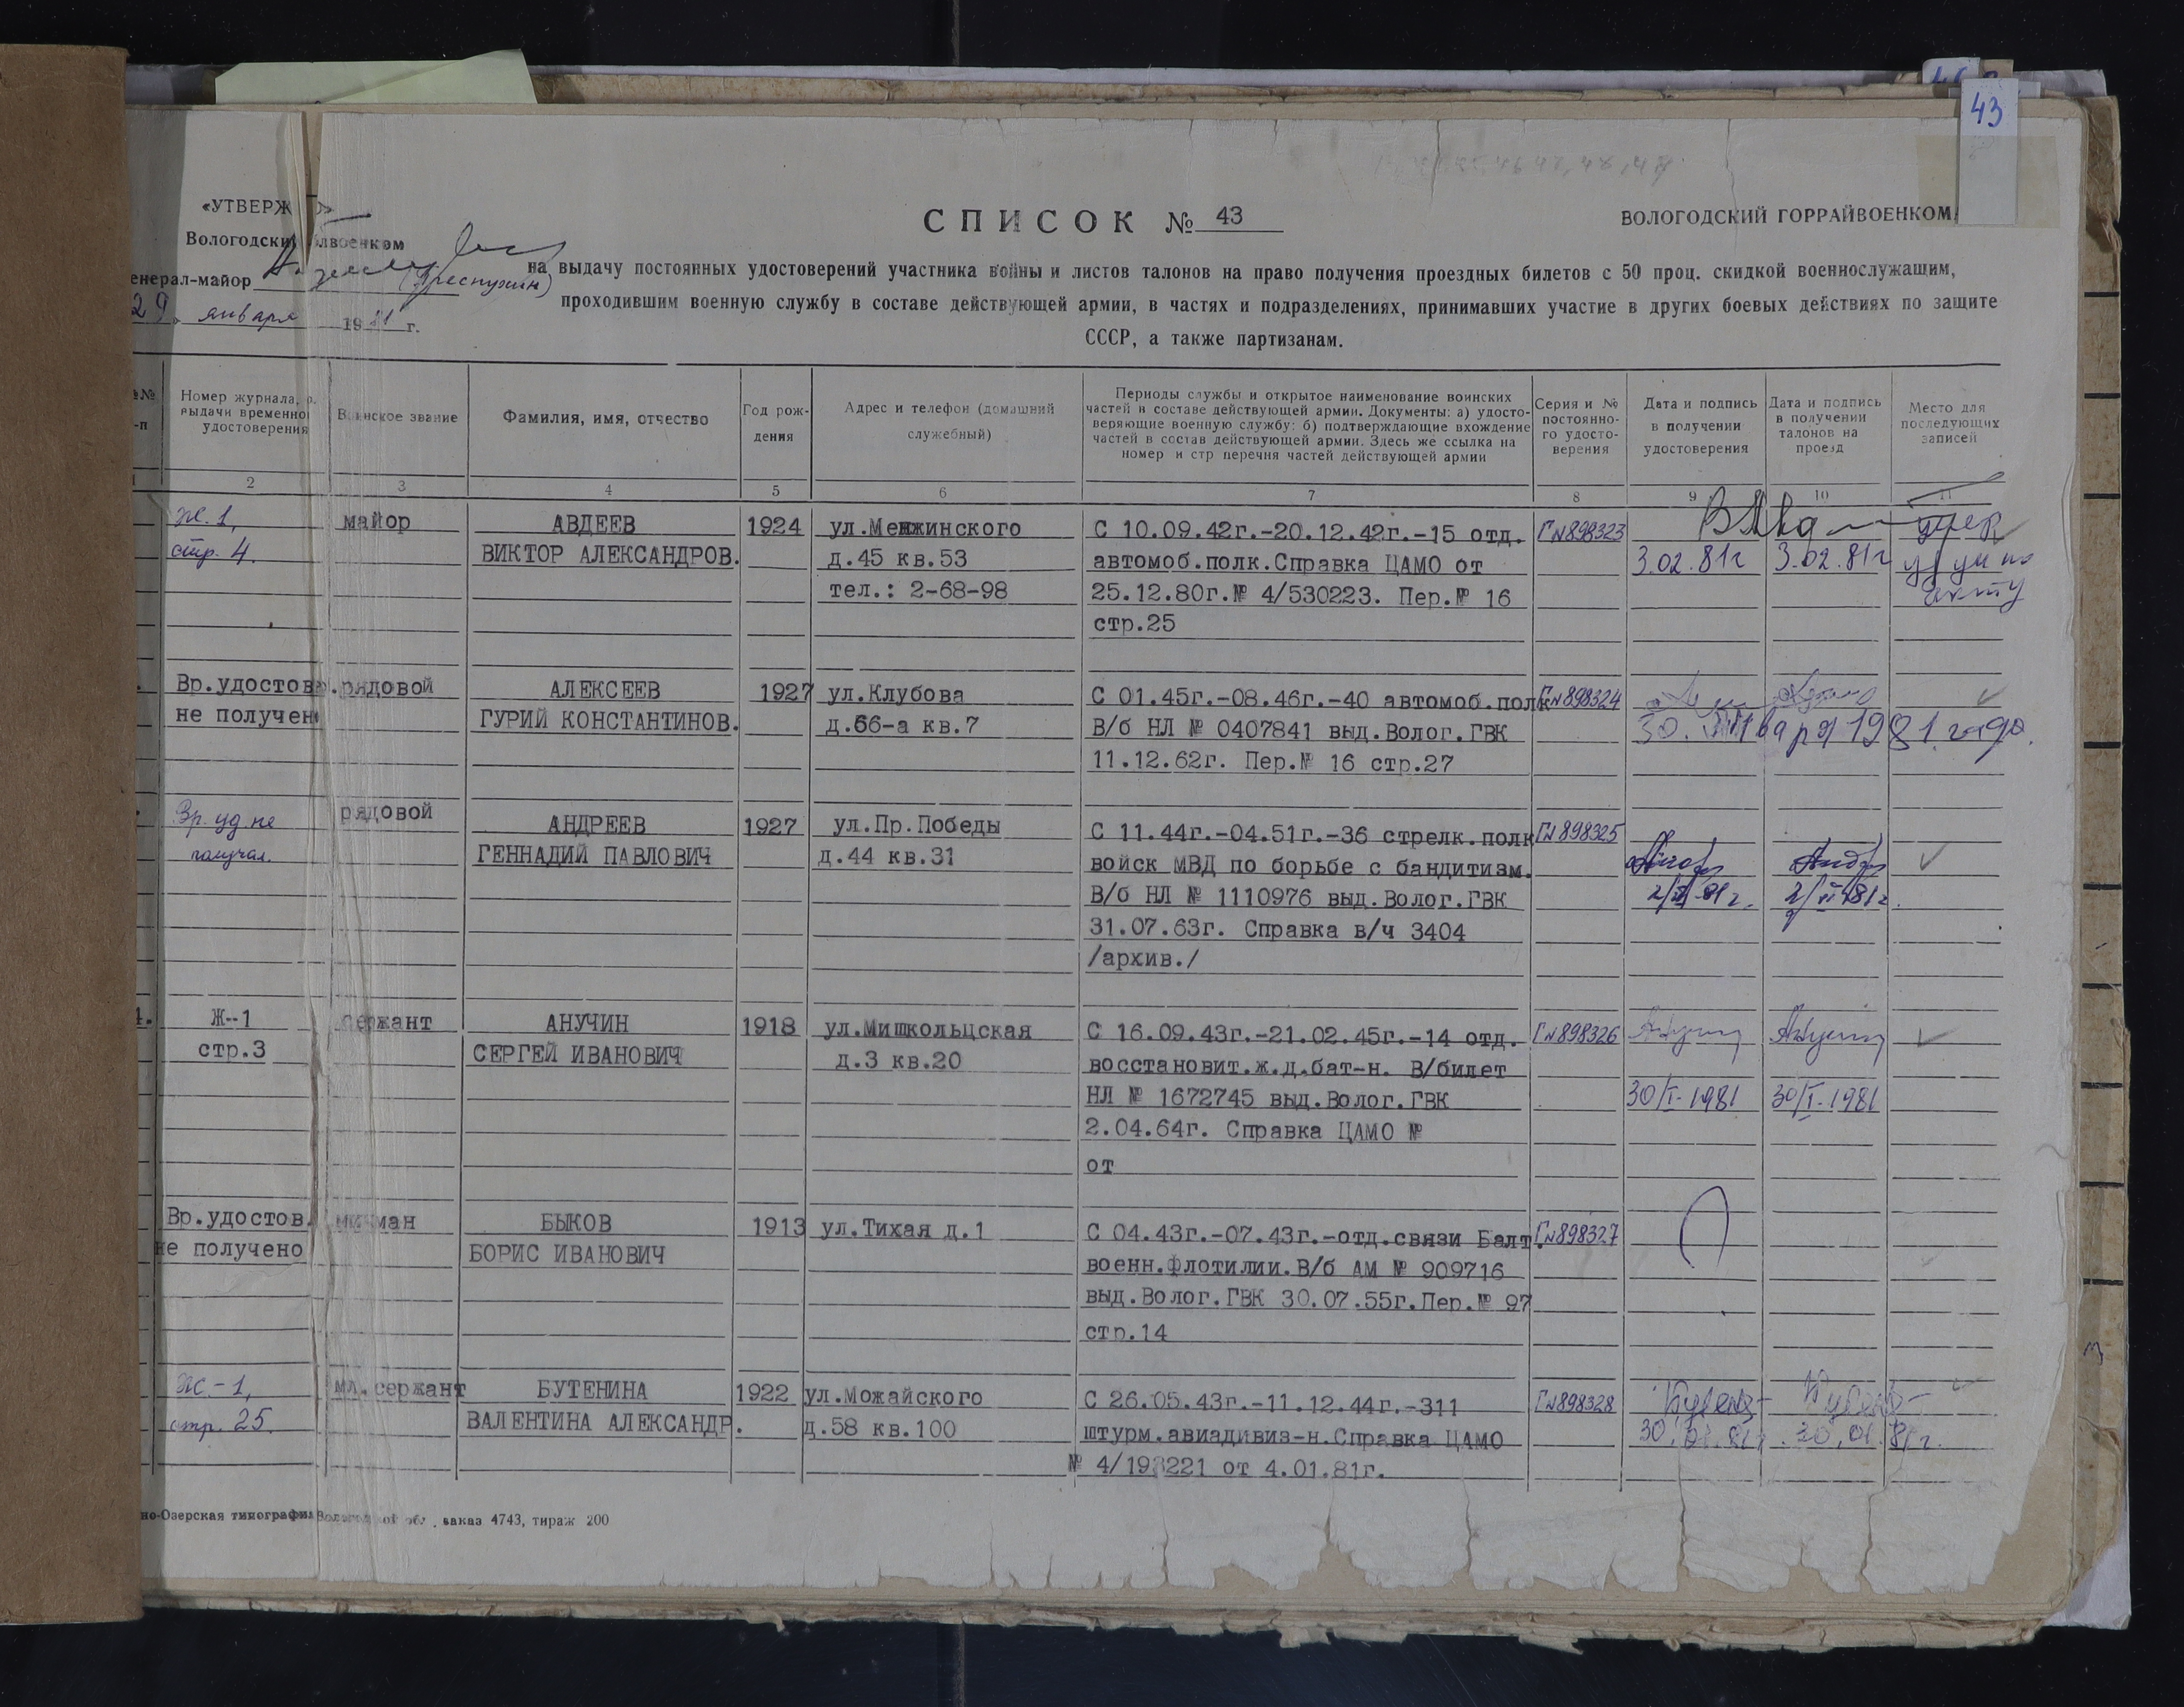 43
«УТВЕРЖД
СПИСОК № 43
ВОЛОГОДСКИЙ ГОРРАЙВОЕНКОМ
Вологодски лвоенком
енерал-майор
29 января 1981 г.
на выдачу постоянных удостоверений участника войны и листов талонов на право получения проездных билетов с 50 проц. скидкой военнослужащим,
проходившим военную службу в составе действующей армии, в частях и подразделениях, принимавших участие в других боевых действиях по защите
СССР, а также партизанам.
№№
-п
Номер журнала,
выдачи временно
удостоверения
Воинское звание
Фамилия, имя, отчество
Год рож-
дения
Адрес и телефон (домашний
служебный)
Периоды службы и открытое наименование воинских
частей в составе действующей армии. Документы: а) удосто-
веряющие военную службу: б) подтверждающие вхождение
частей в состав действующей армии. Здесь же ссылка на
номер и стр перечня частей действующей армии
Серия и №
постоянно-
го удосто-
верения
Дата и подпись
в получении
удостоверения
Дата и подпись
в получении
талонов на
проезд
Место для
последующих
записей
1 2 3 4 5 6 7 8 9 10 11
Ж. 1,
стр. 4.
майор
АВДЕЕВ
ВИКТОР АЛЕКСАНДРОВ.
1924
ул.Менжинского
д.45 кв.53
тел.: 2-68-98
С 10.09.42г.-20.12.42г.-15 отд.
автомоб.полк.Справка ЦАМО от
25.12.80г.№ 4/530223. Пер.№ 16
стр.25
Г№898323
3.02.81г
3.02.81г
умер
уд ун по
акту
Вр.удостов.
не получен
рядовой
АЛЕКСЕЕВ
ГУРИЙ КОНСТАНТИНОВ.
1927
ул.Клубова
д.66-а кв.7
С 01.45г.-08.46г.-40 автомоб.полк
В/б НЛ № 0407841 выд.Волог.ГВК
11.12.62г. Пер.№ 16 стр.27
Г№898324
30. января 1981 года.
Вр. уд не
получал.
рядовой
АНДРЕЕВ
ГЕННАДИЙ ПАВЛОВИЧ
1927
ул.Пр.Победы
д.44 кв.31
С 11.44г.-04.51г.-36 стрелк.полк
войск МВД по борьбе с бандитизм.
В/б НЛ № 1110976 выд.Волог.ГВК
31.07.63г. Справка в/ч 3404
/архив./
Г№898325
2/II 81г.
2/II 81г.
4.
Ж-1
стр.3
сержант
АНУЧИН
СЕРГЕЙ ИВАНОВИЧ
1918
ул.Мишкольцская
д.3 кв.20
С 16.09.43г.-21.02.45г.-14 отд.
восстановит.ж.д.бат-н. В/билет
НЛ № 1672745 выд.Волог.ГВК
2.04.64г. Справка ЦАМО №
от
Г№898326
30/I-1981
30/I-1981
Вр.удостов.
не получено
мичман
БЫКОВ
БОРИС ИВАНОВИЧ
1913
ул.Тихая д.1
С 04.43г.-07.43г.-отд.связи Балт.
военн.флотилии.В/б АМ № 909716
выд.Волог.ГВК 30.07.55г.Пер.№ 97
стр.14
Г№898327
Ж.-1,
стр. 25.
мл.сержант
БУТЕНИНА
ВАЛЕНТИНА АЛЕКСАНДР.
1922
ул.Можайского
д.58 кв.100
С 26.05.43г.-11.12.44г.-311
штурм.авиадивиз-н.Справка ЦАМО
от 4.01.81г.
Г№898328
30.01.81г.
30.01.81г.
но-Озерская типография Вологодской обл., заказ 4743, тираж 200